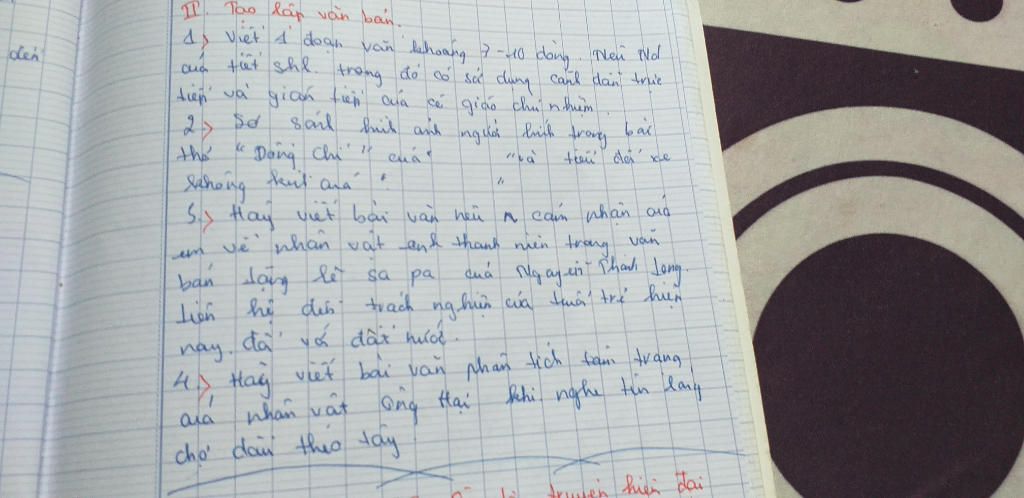 đến
II. Tạo lập văn bản.
1> Viết 1 đoạn văn khoảng 7-10 dòng. Nêu Nd
của tiết shl. trong đó có sử dụng cách dẫn trực
tiếp và gián tiếp của cô giáo chủ nhiệm.
2> So sánh hình ảnh người lính trong bài
thơ "Đồng chí" của " "và tiểu đội xe
không kính của " "
3> Hãy viết bài văn nêu cảm nhận của
em về nhân vật anh thanh niên trong văn
bản Lặng lẽ sa pa của Nguyễn Thành Long.
Liên hệ đến trách nghiện của tuổi trẻ hiện
nay. đối với đất nước.
4> Hãy viết bài văn phân tích tâm trạng
của nhân vật Ông Hai khi nghe tin làng
chợ dầu theo tây
truyện hiện đại